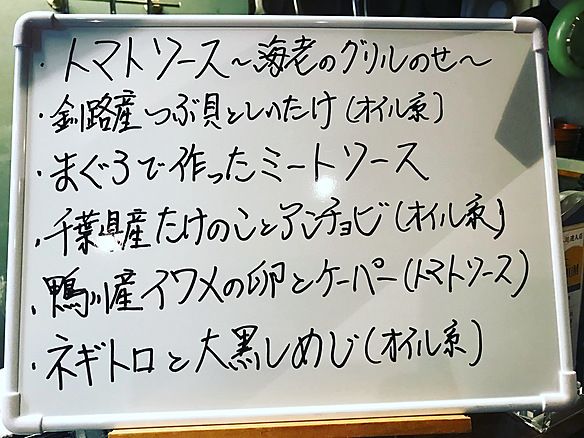 ・トマトソース〜海老のグリルのせ〜
・釧路産つぶ貝としいたけ(オイル系)
・まぐろで作ったミートソース
・千葉県産たけのことアンチョビ(オイル系)
・鴨川産イワメの卵とケーパー(トマトソース)
・ネギトロと大黒しめじ(オイル系)